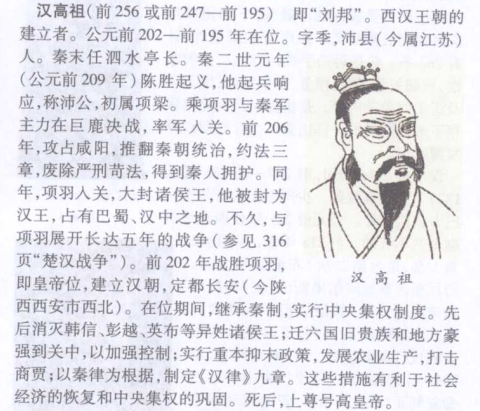 汉高祖(前256或前247—前195) 即“刘邦”。西汉王朝的
建立者。公元前202—前195年在位。字季,沛县(今属江苏)
人。秦末任泗水亭长。秦二世元年
(公元前209年)陈胜起义,他起兵响
应,称沛公,初属项梁。乘项羽与秦军
主力在巨鹿决战,率军入关。前206
年,攻占咸阳,推翻秦朝统治,约法三
章,废除严刑苛法,得到秦人拥护。同
年,项羽入关,大封诸侯王,他被封为
汉王,占有巴蜀、汉中之地。不久,与
项羽展开长达五年的战争(参见316
页“楚汉战争”)。前202年战胜项羽,
即皇帝位,建立汉朝,定都长安(今陕
西西安市西北)。在位期间,继承秦制,实行中央集权制度。先
后消灭韩信、彭越、英布等异姓诸侯王;迁六国旧贵族和地方豪
强到关中,以加强控制;实行重本抑末政策,发展农业生产,打击
商贾;以秦律为根据,制定《汉律》九章。这些措施有利于社会
经济的恢复和中央集权的巩固。死后,上尊号高皇帝。
汉高祖